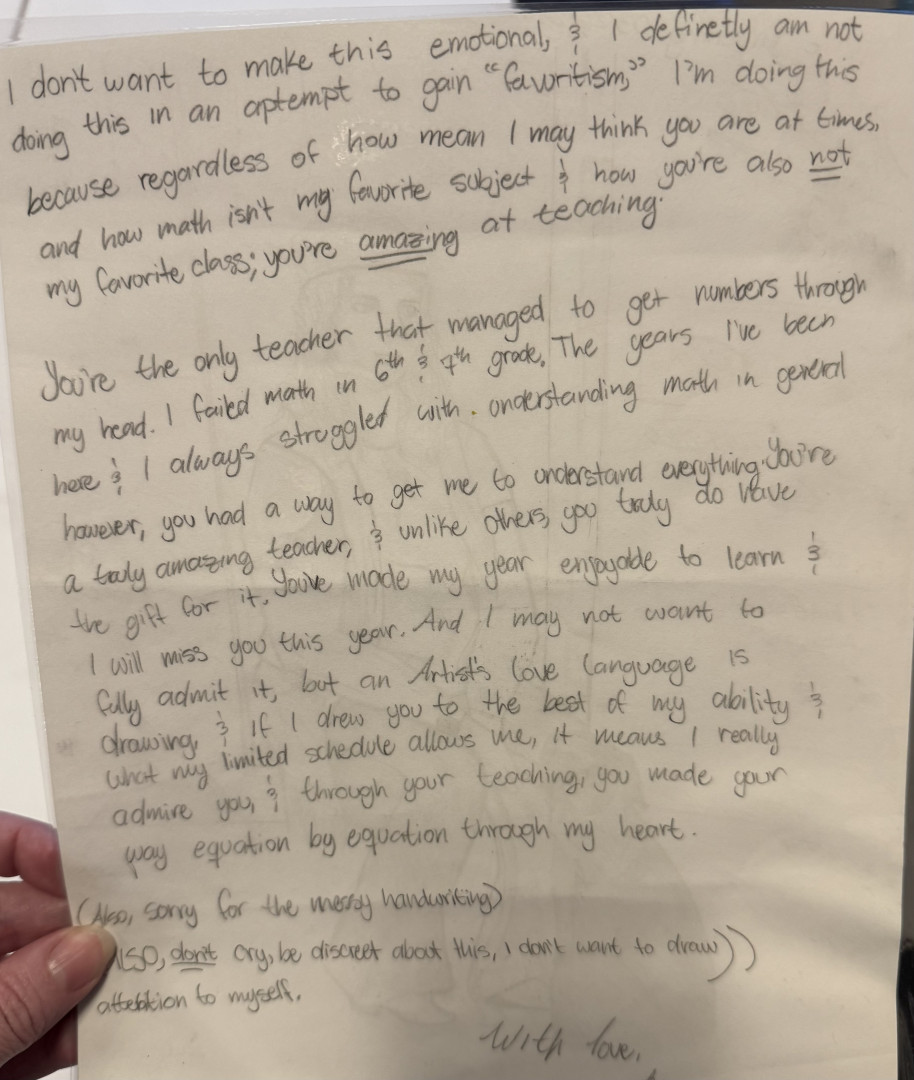 I don't want to make this emotional, & I definetly am not
doing this in an aptempt to gain "favoritism," I'm doing this
because regardless of how mean I may think you are at times,
and how math isn't my favorite subject & how you're also not
my favorite class; you're amazing at teaching.
You're the only teacher that managed to get numbers through
my head. I failed math in 6th & 7th grade. The years I've been
here & I always struggled with understanding math in general
however, you had a way to get me to understand everything. You're
a truly amazing teacher, & unlike others, you truly do have
the gift for it. You've made my year enjoyable to learn &
I will miss you this year. And I may not want to
fully admit it, but an Artist's love language is
drawing, & if I drew you to the best of my ability &
what my limited schedule allows me, it means I really
admire you, & through your teaching, you made your
way equation by equation through my heart.
(Also, sorry for the messy handwriting)
ALSO, don't cry, be discreet about this, I don't want to draw))
attention to myself.
With love,